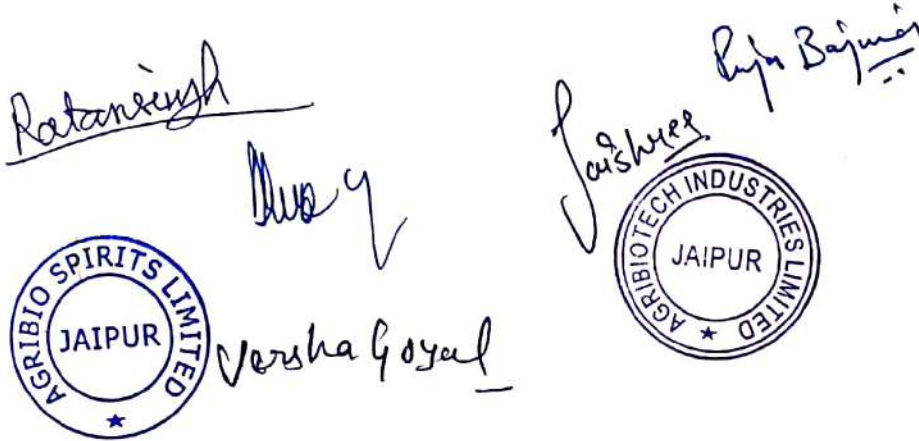 Puja Bajmai
Ratansingh
Jaishree
AGRIBIOTECH INDUSTRIES LIMITED
JAIPUR
AGRIBIO SPIRITS LIMITED
JAIPUR
Varsha Goyal